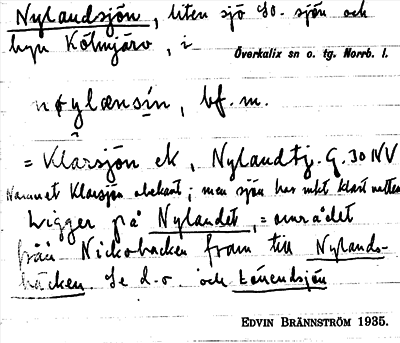 Nylandsjön, liten sjö SO. sjön och
byn Kölmjärv, i
Överkalix sn o. tg. Norrb. l.
nøylænsìn, bf. m.
= Klarsjön ek, Nylandtj. G. 30 NV
Namnet Klarsjön obekant; men sjön har mkt klart vatten
Ligger på Nylandet, = området
från Nickobacken fram till Nylands-
bäcken. Se d. o. och
EDVIN BRÄNNSTRÖM 1935.